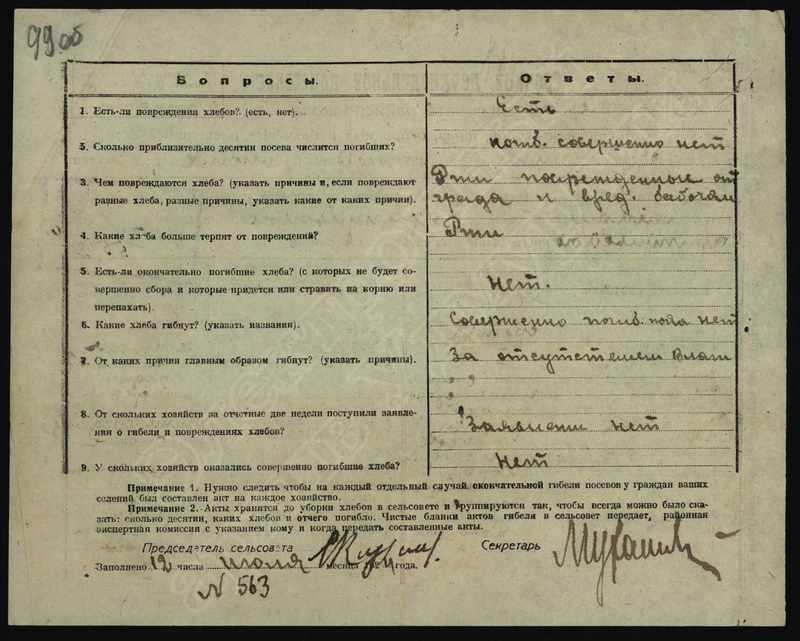 99об
Вопросы.
Ответы.
1. Есть-ли повреждения хлебов? (есть, нет).
Есть
3. Сколько приблизительно десятин посева числится погибших?
погиб. совершенно нет
3. Чем повреждаются хлеба? (указать причины и, если повреждают
разные хлеба, разные причины, указать какие от каких причин).
Ржи поврежденные от
града и вред.
4. Какие хлеба больше терпят от повреждений?
Ржи
5. Есть-ли окончательно погибшие хлеба? (с которых не будет со-
вершенно сбора и которые придется или стравить на корню или
перепахать).
Нет.
6. Какие хлеба гибнут? (указать названия).
Совершенно погиб. пока нет
7. От каких причин главным образом гибнут? (указать причины).
За отсутствием влаги
8. От скольких хозяйств за отчетные две недели поступили заявле-
ния о гибели и повреждениях хлебов?
Заявлений нет
9. У скольких хозяйств оказались совершенно погибшие хлеба?
Нет
Примечание 1. Нужно следить чтобы на каждый отдельный случай окончательной гибели посевов у граждан ваших
селений был составлен акт на каждое хозяйство.
Примечание 2. Акты хранятся до уборки хлебов в сельсовете и группируются так, чтобы всегда можно было ска-
зать: сколько десятин, каких хлебов и отчего погибло. Чистые бланки актов гибели в сельсовет передает, районная
экспертная комиссия с указанием кому и когда передать составленные акты.
Председатель сельсовета
Секретарь
Заполнено 12 числа июля месяца 192 года.
N 563